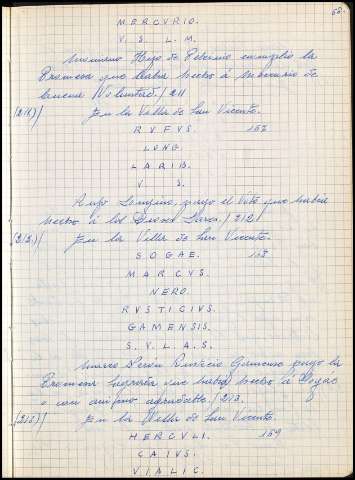 68.
MERCVRIO.
V. S. L. M.
Hijo de Peternio cumplio la
Promesa que habia hecho á Mercurio de
buena Voluntad. /211
/211)/ En la Villa de San Vicente.
RVFVS. 157
LONG.
LARIB.
V. S.
Rufo Longino, pago el Voto que habia
hecho á los Dioses Lares. /212
/212.)/ En la Villa de San Vicente.
SOGAE. 158
MARCVS.
NERO.
RVSTICIVS.
GAMENSIS.
S. V. L. A. S.
Marco Nerón Rusticio Gamense pago la
Promesa que habia hecho á Sogae
con animo agradable. /213.
En la Villa de San Vicente.
HERCVLI. 159
CAIVS.
VIALIC.